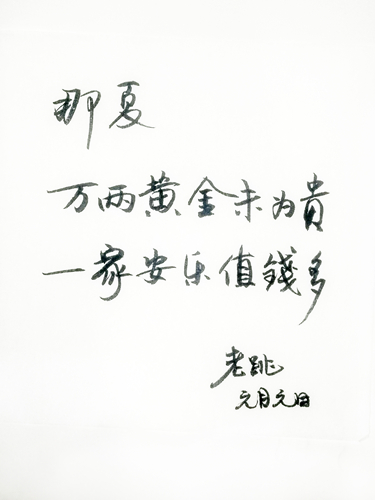 那夏
万两黄金未为貴
一家安乐值錢多
老跳
元月元日